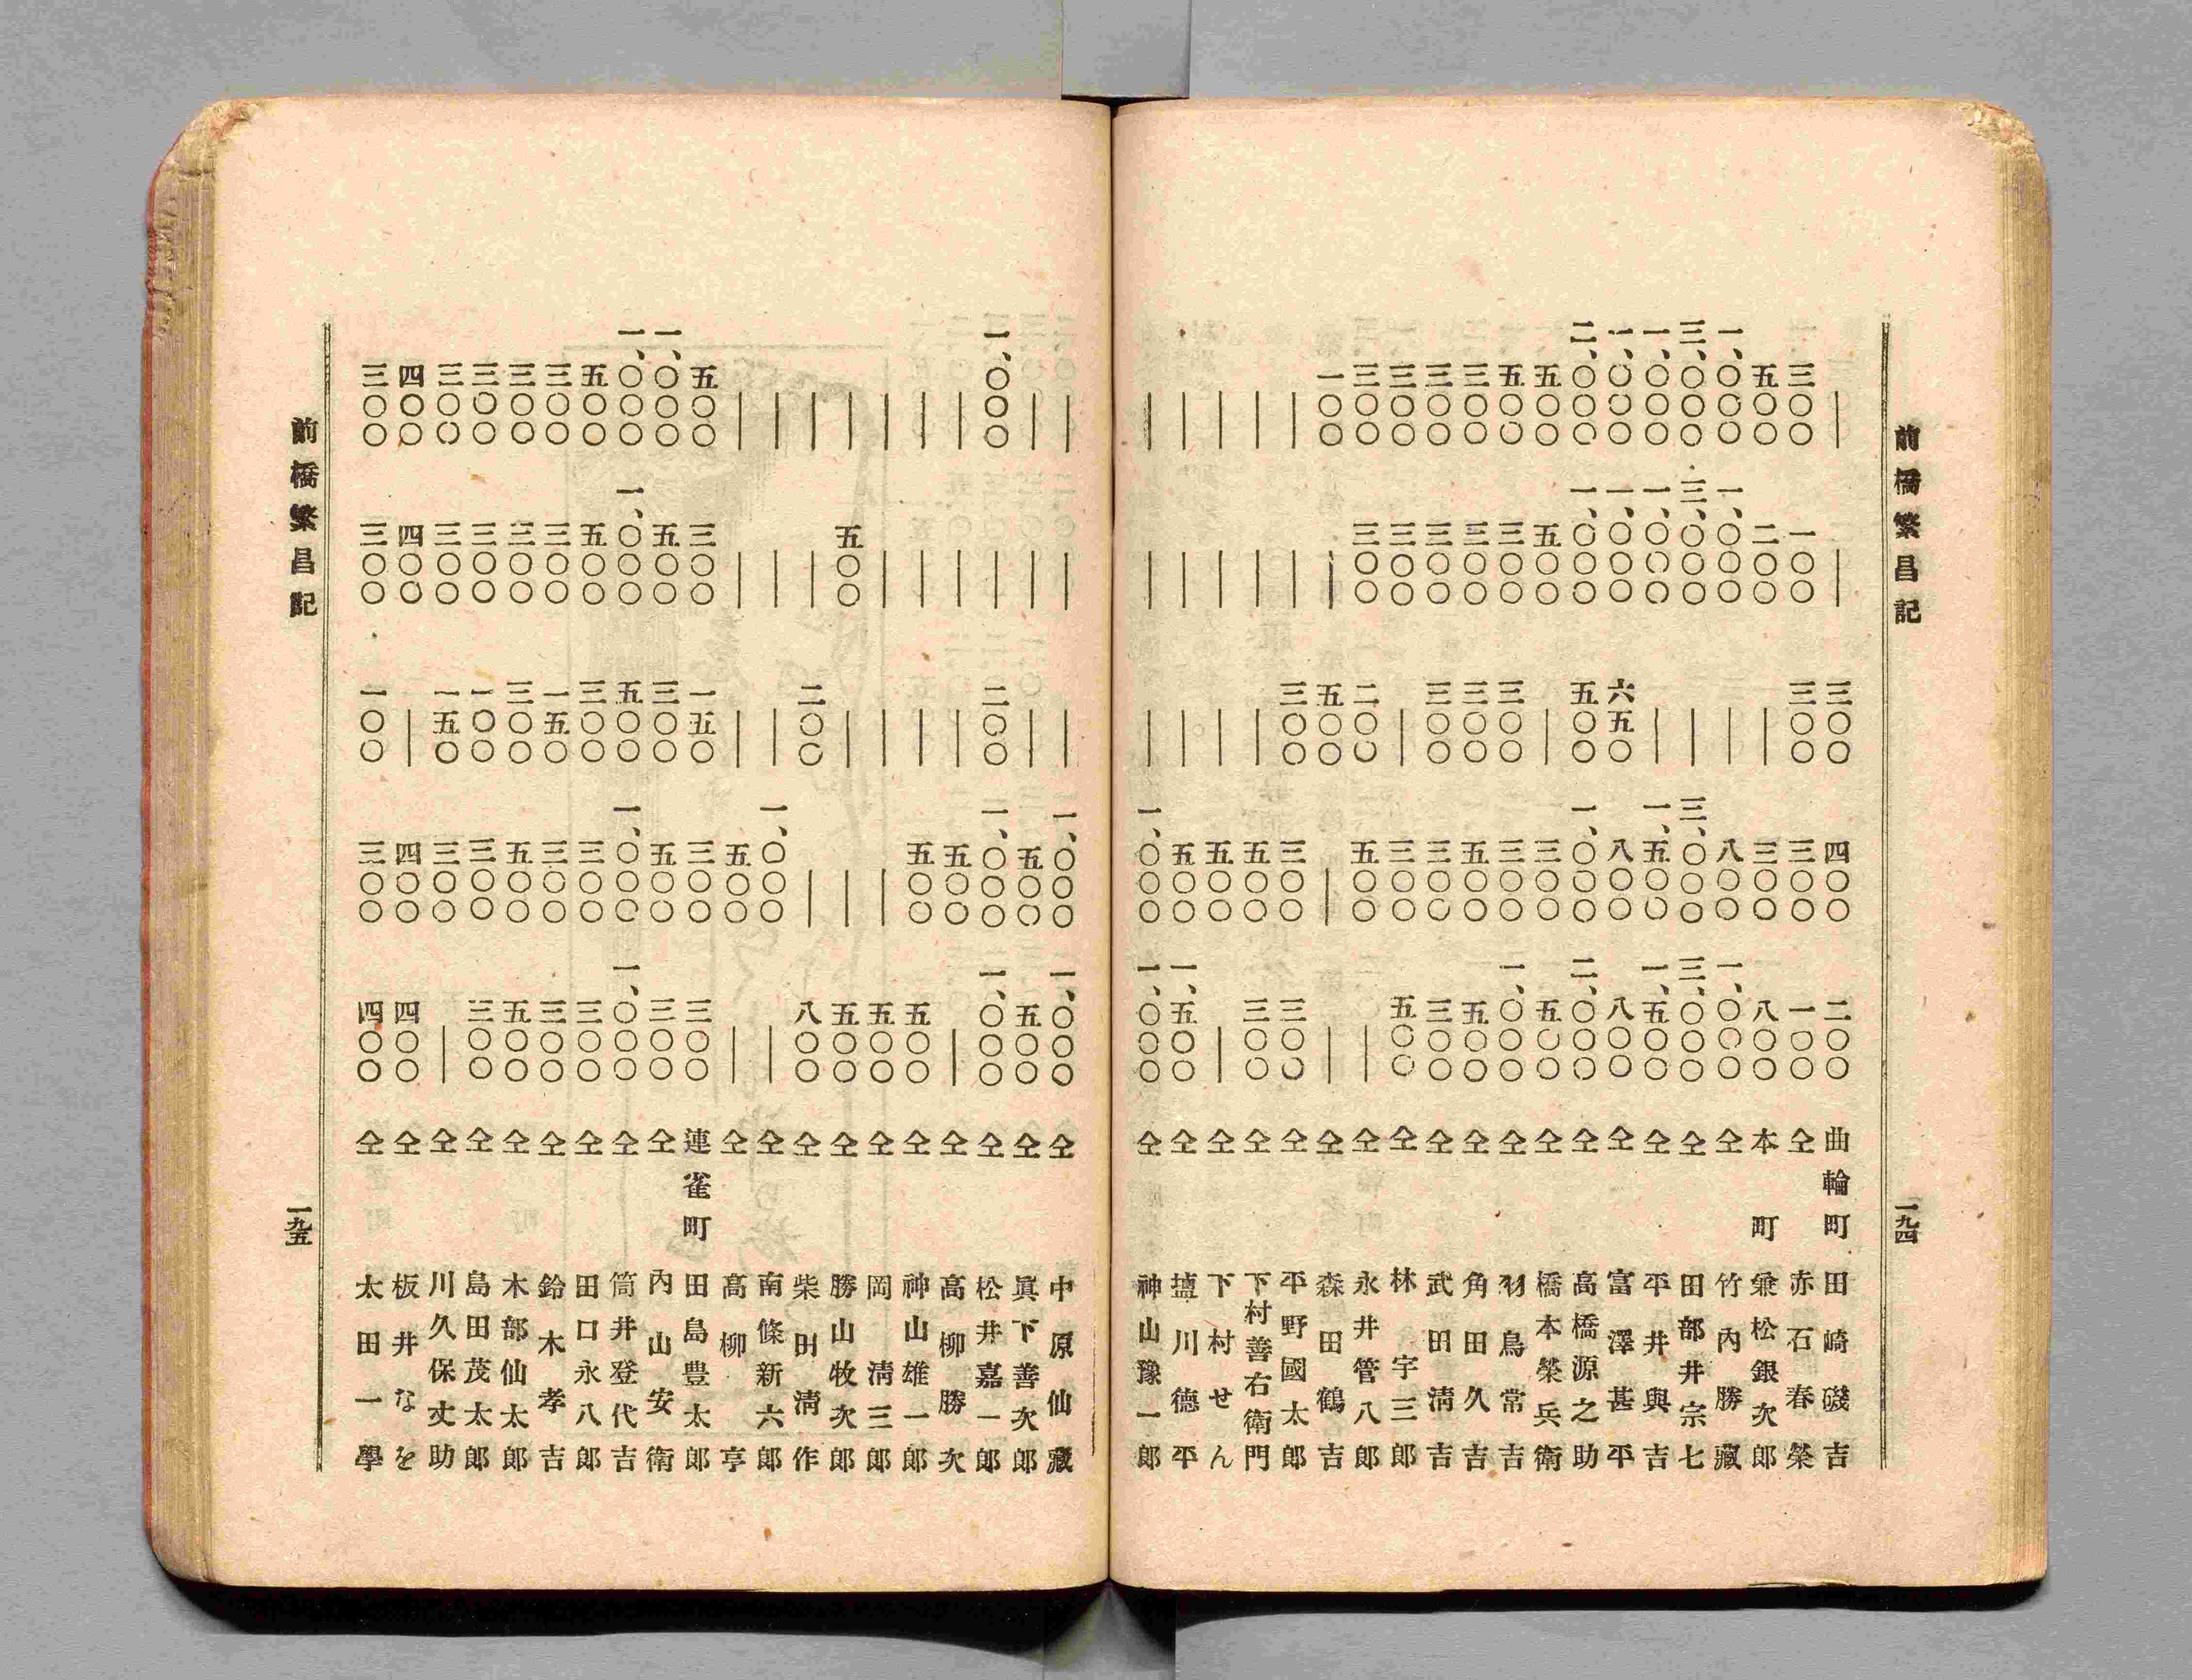 前橋繁昌記
一九四
| | 三〇〇 四〇〇 二〇〇 曲輪町 田崎磯吉
三〇〇 一〇〇 三〇〇 三〇〇 一〇〇 仝 赤石春榮
五〇〇 二〇〇 | 三〇〇 八〇〇 本町 兼松銀次郎
一、〇〇〇 一、〇〇〇 | 八〇〇 一、〇〇〇 仝 竹內勝藏
三、〇〇〇 三、〇〇〇 | 三、〇〇〇 三、〇〇〇 仝 田部井宗七
一、〇〇〇 一、〇〇〇 | 一、五〇〇 一、五〇〇 仝 平井與吉
一、〇〇〇 一、〇〇〇 六五〇 八〇〇 八〇〇 仝 富澤甚平
二、〇〇〇 一、〇〇〇 五〇〇 一、〇〇〇 二、〇〇〇 仝 高橋源之助
五〇〇 五〇〇 | 三〇〇 五〇〇 仝 橋本榮兵衛
五〇〇 三〇〇 三〇〇 三〇〇 一、〇〇〇 仝 羽鳥常吉
三〇〇 三〇〇 三〇〇 五〇〇 五〇〇 仝 角田久吉
三〇〇 三〇〇 三〇〇 三〇〇 三〇〇 仝 武田淸吉
三〇〇 三〇〇 | 三〇〇 五〇〇 仝 林宇三郎
三〇〇 三〇〇 二〇〇 五〇〇 | 仝 永井管八郎
一〇〇 | 五〇〇 | | 仝 森田鶴吉
| | 三〇〇 三〇〇 三〇〇 仝 平野國太郎
| | | 五〇〇 三〇〇 仝 下村善右衛門
| | | 五〇〇 | 仝 下村せん
| | | 五〇〇 一、五〇〇 仝 塩川德平
| | | 一、〇〇〇 一、〇〇〇 仝 神山豫一郎
| | | 一、〇〇〇 一、〇〇〇 仝 中原仙藏
| | | 五〇〇 五〇〇 仝 眞下善次郎
一、〇〇〇 | 二〇〇 一、〇〇〇 一、〇〇〇 仝 松井嘉一郎
| | | 五〇〇 | 仝 高柳勝次
| | | 五〇〇 五〇〇 仝 神山雄一郎
| | | | 五〇〇 仝 岡淸三郎
| 五〇〇 | | 五〇〇 仝 勝山牧次郎
| | 二〇〇 | 八〇〇 仝 柴田淸作
| | | 一、〇〇〇 | 仝 南條新六郎
| | | 五〇〇 | 仝 高柳亨
五〇〇 三〇〇 一五〇 三〇〇 三〇〇 連雀町 田島豊太郎
一、〇〇〇 五〇〇 三〇〇 五〇〇 三〇〇 仝 內山安衛
一、〇〇〇 一、〇〇〇 五〇〇 一、〇〇〇 一、〇〇〇 仝 筒井登代吉
五〇〇 五〇〇 三〇〇 三〇〇 三〇〇 仝 田口永八郎
三〇〇 三〇〇 一五〇 三〇〇 三〇〇 仝 鈴木孝吉
三〇〇 三〇〇 三〇〇 五〇〇 五〇〇 仝 木部仙太郎
三〇〇 三〇〇 一〇〇 三〇〇 三〇〇 仝 島田茂太郎
三〇〇 三〇〇 一五〇 三〇〇 | 仝 川久保丈助
四〇〇 四〇〇 | 四〇〇 四〇〇 仝 板井なを
三〇〇 三〇〇 一〇〇 三〇〇 四〇〇 仝 太田一學
前橋繁昌記
一九五